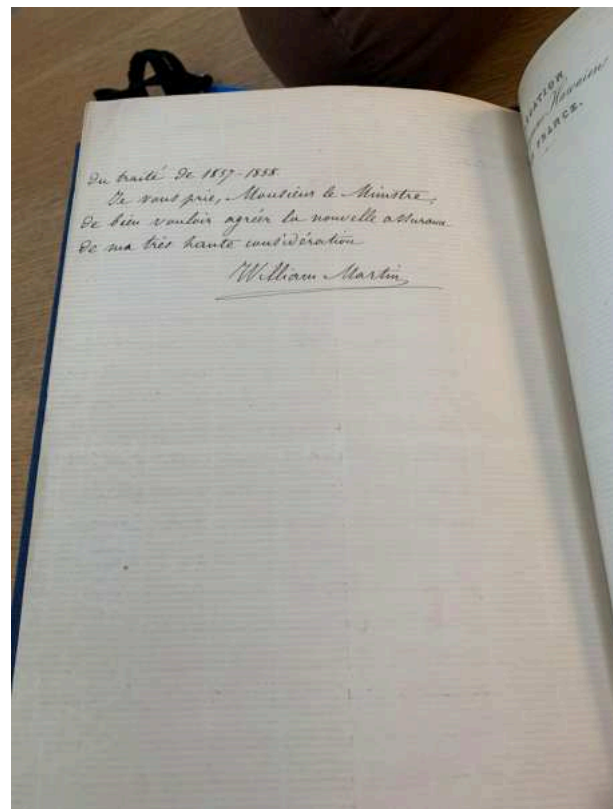 du traité de 1857-1858.
Je vous prie, Monsieur le Ministre,
de bien vouloir agréer la nouvelle assurance
de ma très haute considération
William Martin
Hawaiien
FRANCE.